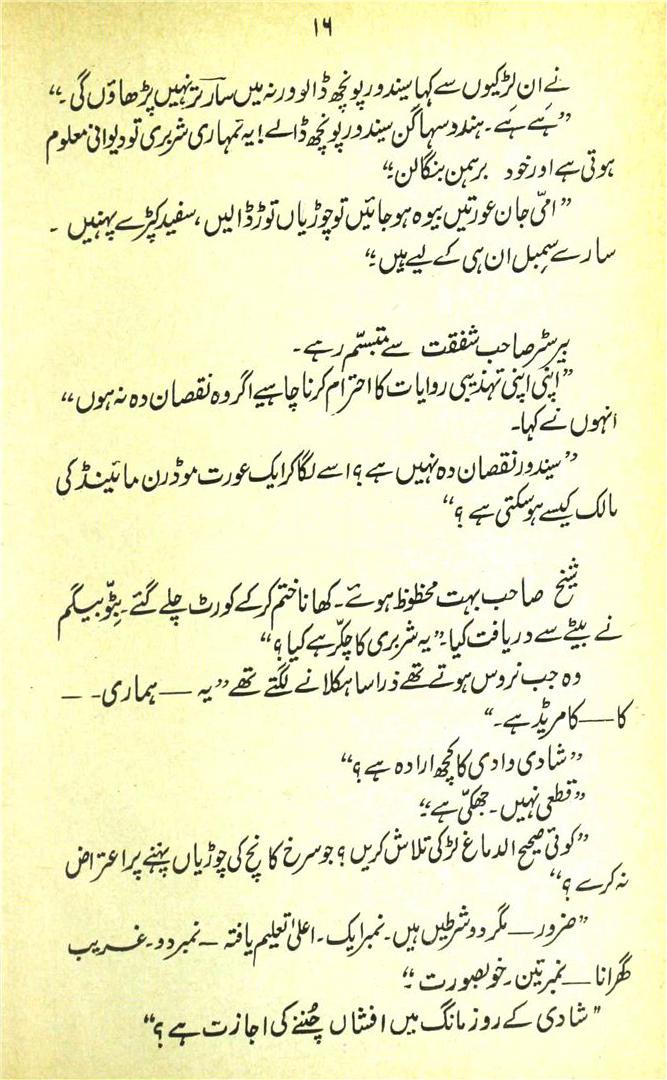 ۱۶
نے ان لڑکیوں سے کہا سیندور پونچھ ڈالو ورنہ میں سارتر نہیں پڑھاؤں گی۔“
”ہَے ہَے۔ ہندو سہاگن سیندور پونچھ ڈالے! یہ تمہاری شربری تو دیوانی معلوم
ہوتی ہے اور خود برہمن بنگالن۔“
”امّی جان عورتیں بیوہ ہو جائیں تو چوڑیاں توڑ ڈالیں، سفید کپڑے پہنیں۔
سارے سِمبل ان ہی کے لیے ہیں۔“
بیرسٹر صاحب شفقت سے متبسّم رہے۔
”اپنی اپنی تہذیبی روایات کا احترام کرنا چاہیے اگر وہ نقصان دہ نہ ہوں“
انہوں نے کہا۔
”سیندور نقصان دہ نہیں ہے؟ اسے لگا کر ایک عورت موڈرن مائینڈ کی
مالک کیسے ہو سکتی ہے؟“
شیخ صاحب بہت محظوظ ہوئے۔ کھانا ختم کر کے کورٹ چلے گئے۔ بِٹّو بیگم
نے بیٹے سے دریافت کیا۔ ”یہ شربری کا چکّر ہے کیا؟“
وہ جب نروس ہوتے تھے ذرا سا ہکلانے لگتے تھے ”یہ — ہماری- —
کا— کامریڈ ہے۔“
”شادی وادی کا کچھ ارادہ ہے؟“
”قطعی نہیں۔ جھکّی ہے۔“
”کوئی صحیح الدماغ لڑکی تلاش کریں؟ جو سرخ کانچ کی چوڑیاں پہننے پر اعتراض
نہ کرے؟“
”ضرور— مگر دو شرطیں ہیں۔ نمبر ایک۔ اعلیٰ تعلیم یافتہ — نمبر دو۔ غریب
گھرانا — نمبر تین۔ خوبصورت۔“
”شادی کے روز مانگ میں افشاں چُننے کی اجازت ہے؟“